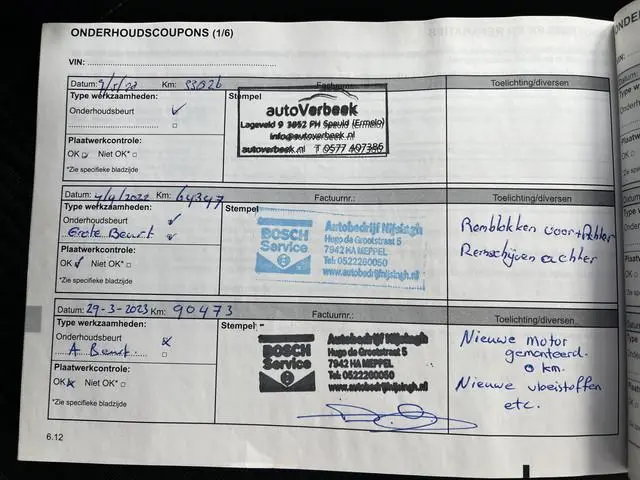 ONDERHOUDSCOUPONS (1/6)
VIN:
Datum: Km: Factuurnr.: Toelichting/diversen
Type werkzaamheden: Stempel
Onderhoudsbeurt
autoVerbeek
Lageveld 9 3852 PH Speuld (Ermelo)
info@autoverbeek.nl
autoverbeek.nl T 0577 407386
Plaatwerkcontrole:
OK Niet OK*
*Zie specifieke bladzijde
Datum: 4/9/2022 Km: 64347 Factuurnr.: Toelichting/diversen
Type werkzaamheden: Stempel
Onderhoudsbeurt
Grote Beurt
BOSCH
Service
Autobedrijf Nijsingh
Hugo de Grootstraat 5
7942 HA MEPPEL
Tel: 0522260050
www.autobedrijfnijsingh.nl
Remblokken voor + Achter
Remschijven achter
Plaatwerkcontrole:
OK Niet OK*
*Zie specifieke bladzijde
Datum: 29-3-2023 Km: 90473 Factuurnr.: Toelichting/diversen
Type werkzaamheden: Stempel
Onderhoudsbeurt
A Beurt
BOSCH
Service
Autobedrijf Nijsingh
Hugo de Grootstraat 5
7942 HA MEPPEL
Tel: 0522260050
www.autobedrijfnijsingh.nl
Nieuwe motor
gemonteerd.
0 km.
Nieuwe vloeistoffen
etc.
Plaatwerkcontrole:
OK Niet OK*
*Zie specifieke bladzijde
6.12
VIN: